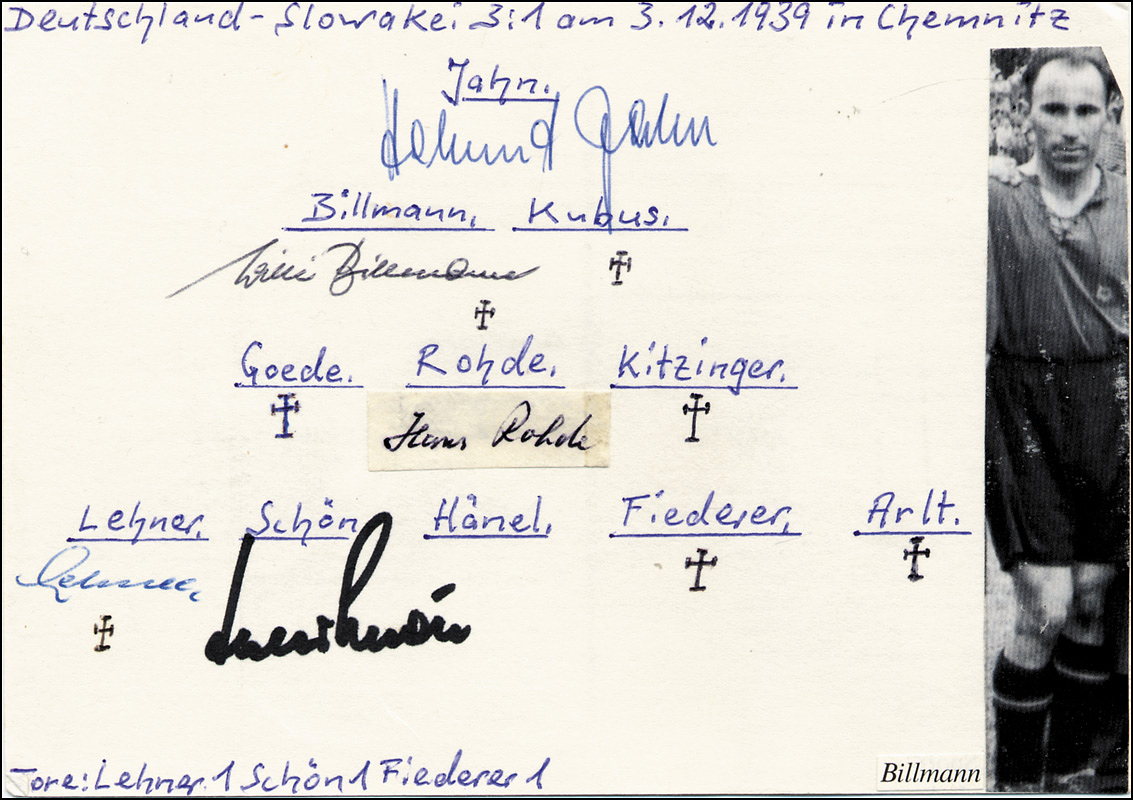 Deutschland - Slowakei 3:1 am 3.12.1939 in Chemnitz
Jahn.
Helmut Jahn
Billmann. Kubus.
Willi Billmann
Goede. Rohde. Kitzinger.
Hans Rohde
Lehner. Schön Hänel. Fiederer. Arlt.
Lehner
Tore: Lehner 1 Schön 1 Fiederer 1
Billmann